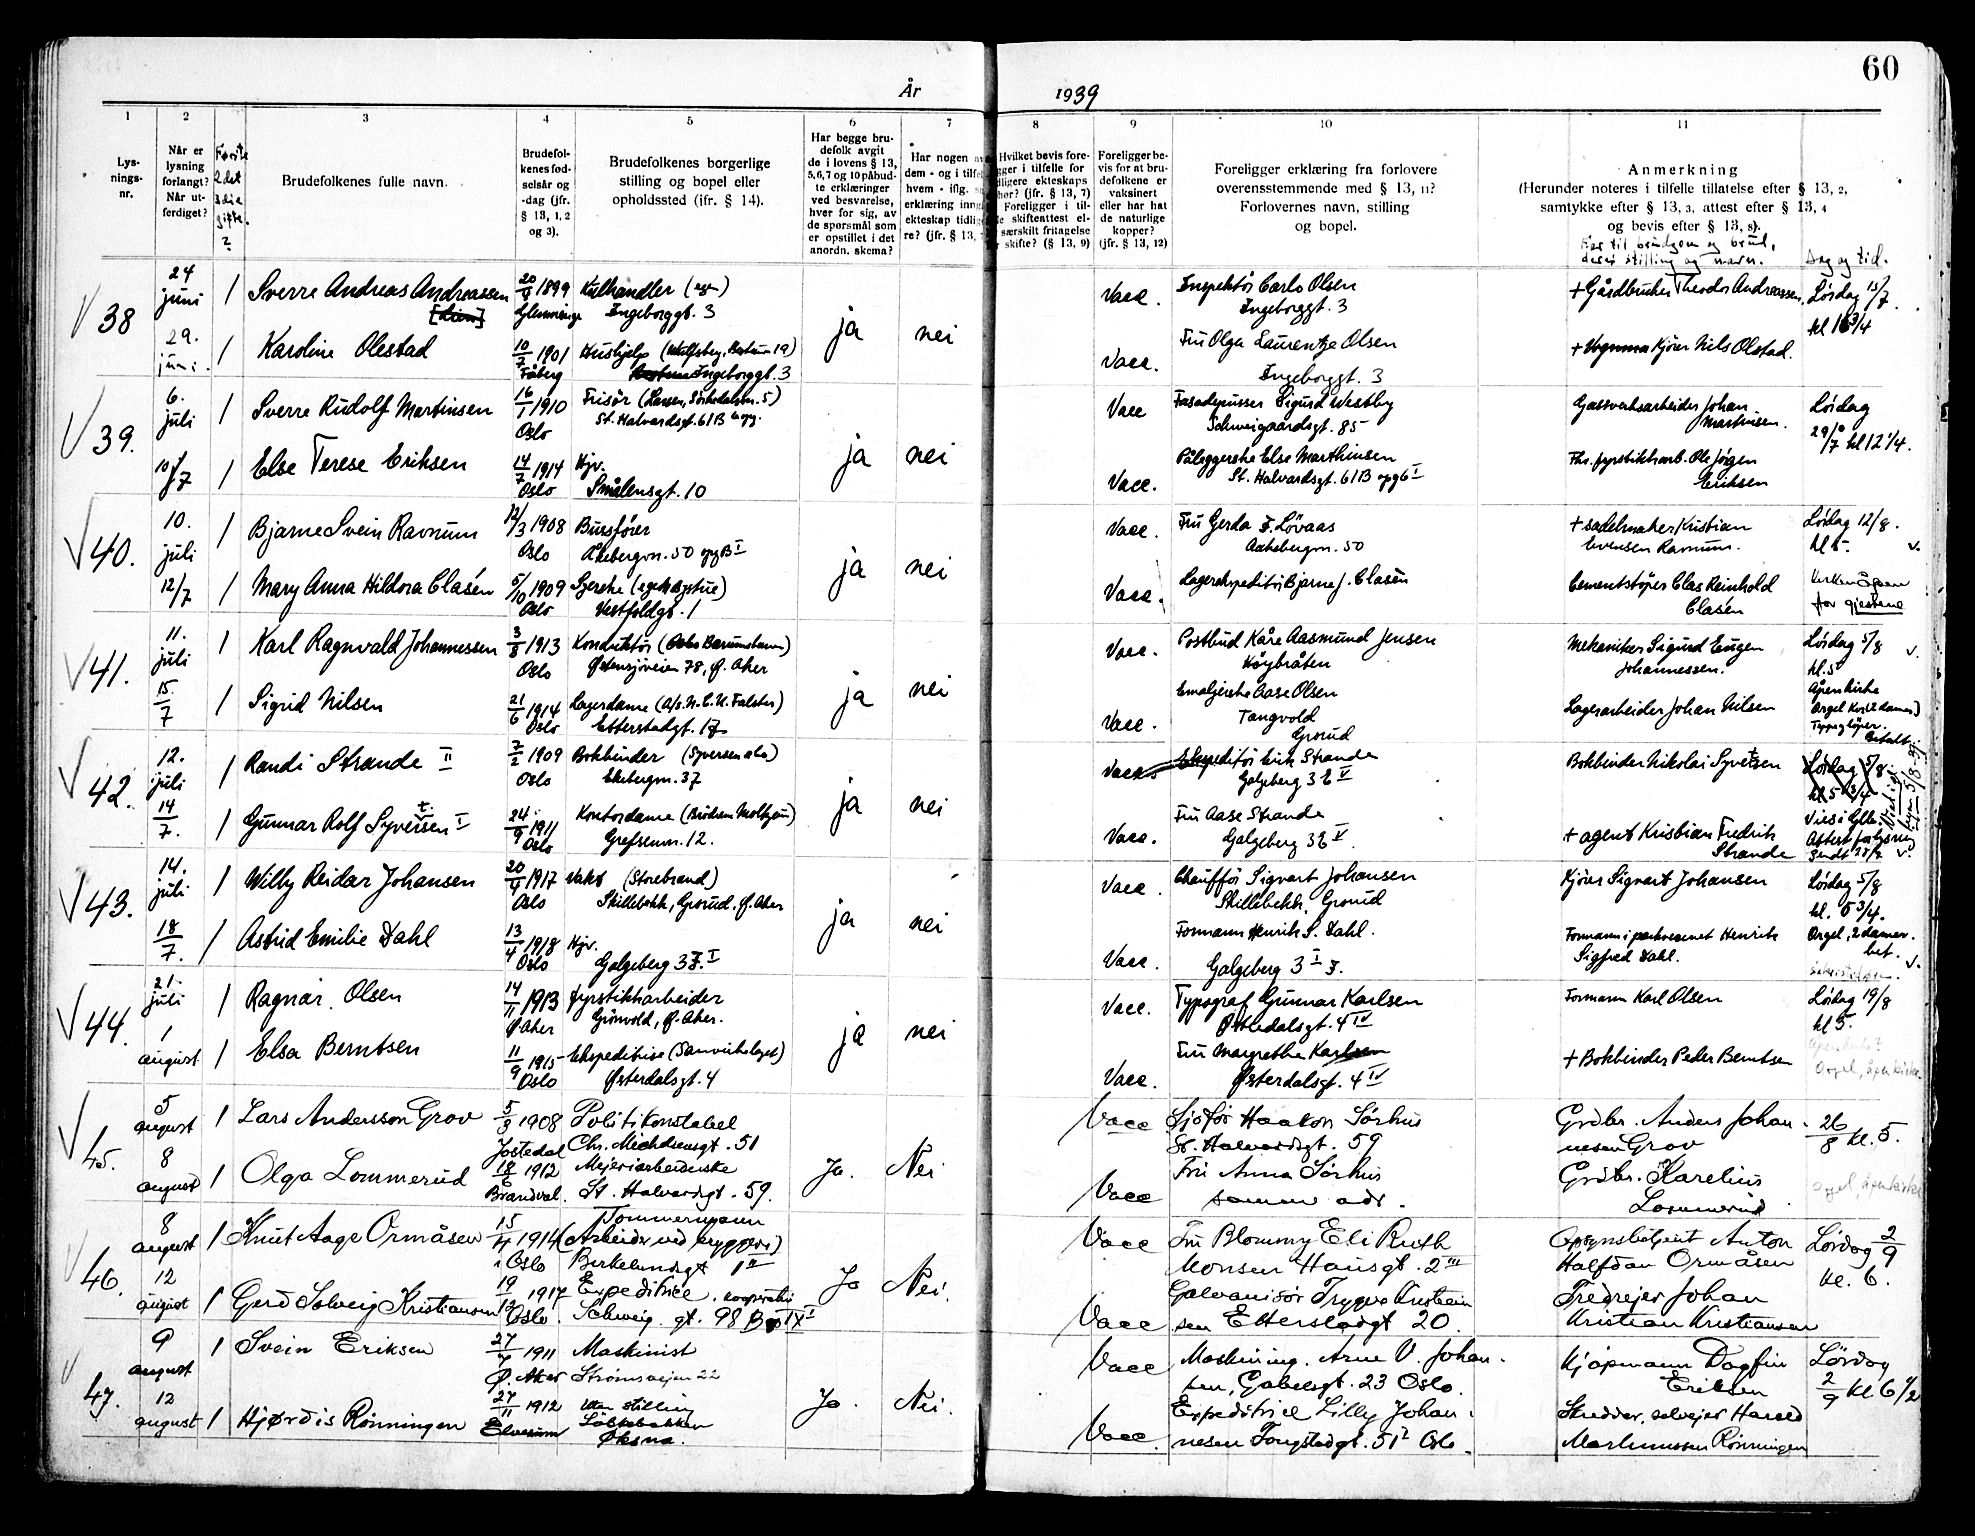 60
År 1939
1 2 3 4 5 6 7 8 9 10 11
Lys-
nings-
nr.
Når er
lysning
forlangt?
Når ut-
ferdiget?
Første
2det
3die
gifte
?
Brudefolkenes fulle navn.
Brudefol-
kenes fød-
selsår og
-dag (jfr.
§ 13, 1, 2
og 3).
Brudefolkenes borgerlige
stilling og bopel eller
opholdssted (jfr. § 14).
Har begge bru-
defolk avgit
de i lovens § 13,
5, 6, 7 og 10 påbud-
te erklæringer
ved besvarelse,
hver for sig, av
de spørsmål som
er opstillet i det
anordn. skema?
Har nogen av
dem - og i tilfe
hvem - iflg. si
erklæring inng
ekteskap tidlig
re? (jfr. § 13,
Hvilket bevis fore-
gger i tilfelle for
dligere ekteskaps
hør? (jfr. § 13, 7)
Foreligger i til-
le skifteattest el-
særskilt fritagelse
skifte? (§ 13, 9)
Foreligger be-
vis for at bru-
defolkene er
vaksinert
eller har hat
de naturlige
kopper?
(jfr. § 13, 12)
Foreligger erklæring fra forlovere
overensstemmende med § 13, 11?
Forlovernes navn, stilling
og bopel.
Anmerkning
(Herunder noteres i tilfelle tillatelse efter § 13, 2,
samtykke efter § 13, 3, attest efter § 13, 4
og bevis efter § 13, 8).
Far til brudgom og brud,
deres stilling og navn.
Dag og tid.
38
24
juni
1 Sverre Andreas Andreassen
[Lien]
20/9 1899
Glemminge
Kulhandler (egen)
Ingeborggt. 3
ja nei
Vacc.
Inspektör Carlo Olsen
Ingeborggt. 3
+ Gårdbruker Theodor Andreassen.
Lørdag 15/7
29.
juni.
1 Karoline Olestad
10/7 1901
Fåberg
Hushjelp
Ingeborggt. 3
Vacc.
Fru Olga Laurentze Olsen
Ingeborggt. 3
Kjører Nils Olstad.
39.
6.
juli
1 Sverre Rudolf Martinsen
16/1 1910
Oslo
Frisør
St. Halvardsgt. 61 B
ja nei
Vacc
Fasadepusser Sigurd Westby
Schweigaardsgt. 85
Gassverksarbeider Johan
Martinsen.
Lördag
29/7 kl 12 1/4.
10/7
1 Else Terese Eriksen
14/7 1914
Oslo
Hjv.
Smålensgt. 10
Vacc.
Påleggerske Else Marthinsen
St. Halvardsgt. 61 B
Fhv. fyrstikkarb. Ole Jørgen
Eriksen
40.
10.
juli
1 Bjarne Svein Ravnum
12/3 1908
Oslo
Bussfører
Åkebergvn. 50 opg B I
ja nei
Vacc.
Fru Gerda F. Lövaas
Aakebergvn. 50
+ sadelmaker Kristian
Evensen Ravnum.
Lördag 12/8.
kl 5.
12/7
1 Mary Anna Hildora Clasén
5/10 1909
Oslo
Syerske (egen systue)
Vestfoldgt. 1
Vacc.
Lagerekspeditör Bjarne J. Clasén
Cementstöper Clas Reinhold
Clasén
for gjestene
41.
11.
juli
1 Karl Ragnvald Johannessen
3/8 1913
Oslo
Konduktör
Østensjøveien 78, Ø. Aker
ja nei
Vacc.
Postbud Kåre Aasmund Jensen
Höybråten
Mekaniker Sigurd Eugen
Johannessen.
Lördag 5/8
kl. 5
15./7
1 Sigrid Nilsen
21/6 1914
Oslo
Lagerdame
Etterstadgt. 17
Vacc.
Emaljerske Aase Olsen
Tangvold
Grorud
Lagerarbeider Johan Nilsen
42.
12.
juli
1 Randi Strande II
7/2 1909
Oslo
Bokbinder
Ekebergvn. 37
ja nei
Vacc.
Ekspeditör Erik Strande
Galgeberg 3 V
Bokbinder Nikolai Syvertsen
Lördag 5/8
kl 5 3/4
14/7.
1 Gunnar Rolf Syvertsen I
24/9 1911
Oslo
Kontordame
Grefsenvn. 12.
Vacc.
Fru Aase Strande
Galgeberg 3 V
+ agent Kristian Fredrik
Strande
43.
14.
juli
1 Willy Reidar Johansen
20/4 1917
Oslo
Vakt (Storebrand)
Skillebekk, Grorud, Ø. Aker
ja nei
Vacc.
Chaufför Sigvart Johansen
Skillebekk, Grorud
Kjörer Sigvart Johansen
Lördag 5/8
kl. 5 3/4.
18/7.
1 Astrid Emilie Dahl
13/4 1918
Oslo
Hjv.
Galgeberg 3 F. I
Vacc.
Formann Henrik S. Dahl.
Galgeberg 3 I F.
Formann i parkvesenet Henrik
Sigfred Dahl.
Orgel, 2 damer.
bet.
44.
21.
juli
1 Ragnar Olsen
14/11 1913
Ø. Aker
Fyrstikkarbeider
Grönvold, Ø. Aker.
ja nei
Vacc.
Typograf Gunnar Karlsen
Østerdalsgt. 4 IV
Formann Karl Olsen
Lördag 19/8
kl 5.
1
august
1 Elsa Berntsen
11/9 1915
Oslo
Ekspeditrise
Østerdalsgt. 4
Vacc.
Fru Margrethe Karlsen
Østerdalsgt. 4 IV
+ Bokbinder Peder Berntsen
Orgel, åpen kirke.
45.
5
august
1 Lars Andersson Grov
5/3 1908
Jostedal
Politikonstabel
Chr. Michelsensgt. 51
Ja. Nei
Vacc
Sjåfør Haakon Sørhus
St. Halvardsgt. 59
Grdbr. Anders Johan-
nesen Grov
26/8 kl. 5.
8
august
1 Olga Lommerud
18/6 1912
Brandval.
Mejeriarbeiderske
St. Halvardsgt. 59.
Vacc
Fru Anna Sørhus
samme adr.
Grdbr. Karelius
Lommerud
46.
8
august
1 Knut Aage Ormåsen
15/4 1914
Oslo
Tømmermann
(Arbeider ved bryggeri)
Birkelundsgt 1 II
Ja Nei.
Vacc
Fru Blommy Eli Ruth
Monsen Hansgt. 2 III
Opsynsbetjent Anton
Halfdan Ormåsen
Lørdag 2/9
kl. 6.
12
august
1 Gerd Solveig Kristiansen
19/12 1917
Oslo.
Expeditrice, kooperativ
Schweig. gt. 98 B
Vacc
Galvanisør Trygve Kristian
sen Etterstadgt 20.
Trædrejer Johan
Kristian Kristiansen
47.
9
august
1 Svein Eriksen
27/4 1911
Ø. Aker
Maskinist
Strømsvejen 22
Ja. Nei.
Vacc
Maskining. Arne V. Johan-
sen, Gabelsgt. 23 Oslo.
Kjøpmann Dagfin
Eriksen
Lørdag
2/9 kl. 6 1/2
12
august
1 Hjørdis Rønningen
27/11 1912
Elverum
Uten stilling
Løkkebakken
Øksna.
Vacc.
Expeditrice Lilly Johan-
nesen Tongstadgt. 51 I Oslo.
Skredder, selvejer Harald
Martinussen Rønningen